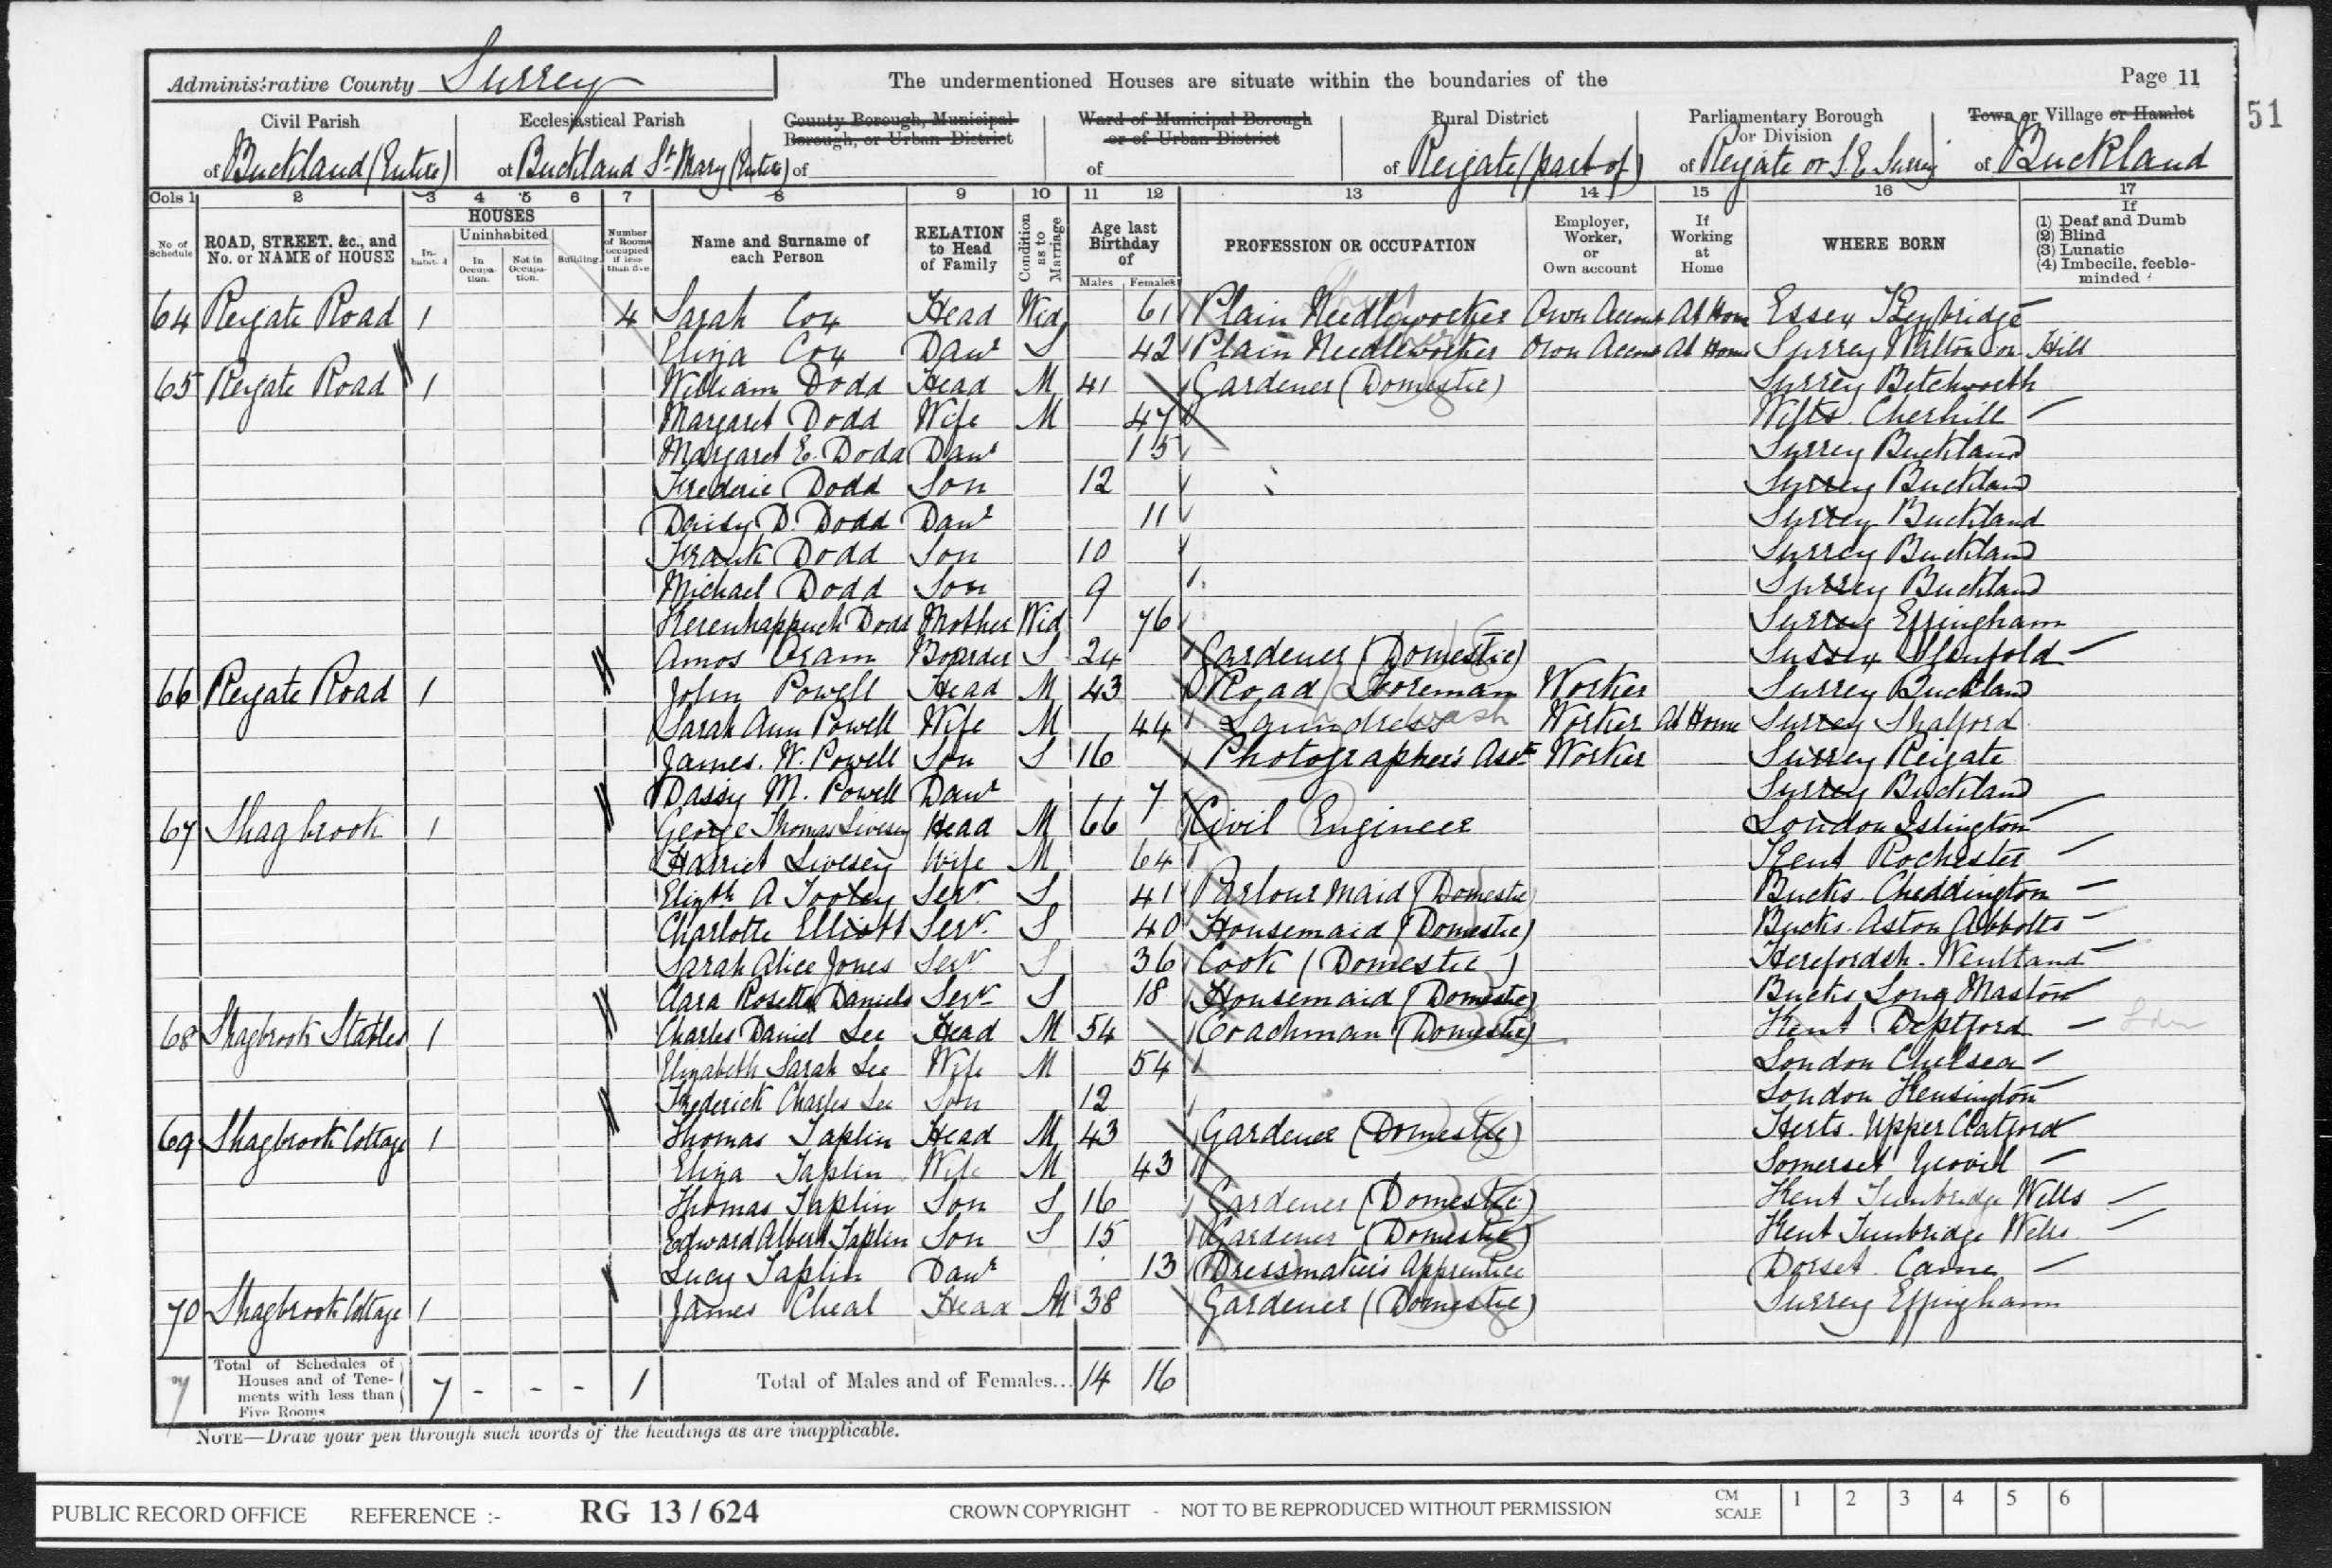 Administrative County Surrey The undermentioned Houses are situate within the boundaries of the Page 11
51
Civil Parish Ecclesiastical Parish County Borough, Municipal Borough, or Urban District Ward of Municipal Borough or of Urban District Rural District Parliamentary Borough or Division Town or Village or Hamlet
of Buckland (Entire) of Buckland St Mary (Entire) of of of Reigate (part of) of Reigate or S.E. Surrey of Buckland
Cols 1 2 3 4 5 6 7 8 9 10 11 12 13 14 15 16 17
No. of Schedule ROAD, STREET, &c., and No. or NAME of HOUSE HOUSES Inhabited Uninhabited In Occupation. Not in Occupation. Building. Number of Rooms occupied if less than five Name and Surname of each Person RELATION to Head of Family Condition as to Marriage Age last Birthday of Males Females PROFESSION OR OCCUPATION Employer, Worker, or Own account If Working at Home WHERE BORN If (1) Deaf and Dumb (2) Blind (3) Lunatic (4) Imbecile, feeble-minded
64 Reigate Road 1 4 Sarah Cox Head Wid 61 Plain Needleworker Own Account At Home Essex
Eliza Cox Daur S 42 Plain Needleworker Own Account At Home Surrey Walton on Hill
65 Reigate Road 1 William Dodd Head M 41 Gardener (Domestic) Surrey Betchworth
Margaret Dodd Wife M 47 Wilts. Cherhill
Margaret E. Dodd Daur 15 Surrey Buckland
Frederic Dodd Son 12 Surrey Buckland
Daisy D. Dodd Daur 11 Surrey Buckland
Frank Dodd Son 10 Surrey Buckland
Michael Dodd Son 9 Surrey Buckland
Kerenhappuch Dodd Mother Wid 76 Surrey Effingham
Amos Oram Boarder S 24 Gardener (Domestic) Sussex
66 Reigate Road 1 John Powell Head M 43 Road Foreman Worker Surrey Buckland
Sarah Ann Powell Wife M 44 Laundress wash Worker At Home Surrey Shalford
James. W. Powell Son S 16 Photographer's Asst Worker Surrey Reigate
Dassy M. Powell Daur 7 Surrey Buckland
67 Shagbrook 1 George Thomas Livesey Head M 66 Civil Engineer London Islington
Harriet Livesey Wife M 64 Kent Rochester
Elizth A Tooley Servt S 41 Parlour Maid (Domestic Bucks. Cheddington
Charlotte Elliott Servt S 40 Housemaid (Domestic) Bucks. Aston Abbotts
Sarah Alice Jones Servt S 36 Cook (Domestic) Herefordsh.
Clara Rosetta Daniels Servt S 18 Housemaid (Domestic) Bucks Long Maston
68 Shagbrook Stables 1 Charles Daniel Lee Head M 54 Coachman (Domestic) Kent Deptford
Elizabeth Sarah Lee Wife M 54 London Chelsea
Frederick Charles Lee Son 12 London Kensington
69 Shagbrook Cottage 1 Thomas Taplin Head M 43 Gardener (Domestic) Herts. Upper Clatford
Eliza Taplin Wife M 43 Somerset Yeovil
Thomas Taplin Son S 16 Gardener (Domestic) Kent Tunbridge Wells
Edward Albert Taplin Son S 15 Gardener (Domestic) Kent Tunbridge Wells
Lucy Taplin Daur 13 Dressmaker's Apprentice Dorset.
70 Shagbrook Cottage 1 James Cheal Head M 38 Gardener (Domestic) Surrey Effingham
7 Total of Schedules of Houses and of Tenements with less than Five Rooms 7 - - - 1 Total of Males and of Females... 14 16
NOTE—Draw your pen through such words of the headings as are inapplicable.
PUBLIC RECORD OFFICE REFERENCE :- RG 13 / 624 CROWN COPYRIGHT - NOT TO BE REPRODUCED WITHOUT PERMISSION CM SCALE 1 2 3 4 5 6